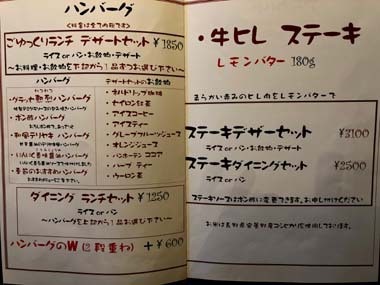 ハンバーグ
ごゆっくりランチ デザートセット ¥1850
ライス or パン・お飲物・デザート
〜お料理・お飲物を下記から1品ずつお選び下さい〜
ハンバーグ
・グラッセ ハンバーグ
・ポン酢 ハンバーグ
・和風テリヤキ ハンバーグ
ハンバーグ
ハンバーグ
デザートセットのお飲物
・ネルドリップ珈琲
・セイロン紅茶
・アイスコーヒー
・アイスティー
・グレープフルーツジュース
・オレンジジュース
・バンホーテン ココア
・ハーブ ティー
・ウーロン茶
ダイニング ランチセット ¥1250
ライス or パン
〜ハンバーグを上記から1品お選び下さい〜
ハンバーグのW(2段重ね) +¥600
・牛ヒレ ステーキ
レモンバター 180g
やわらかい赤みのヒレ肉をレモンバターで
ステーキデザートセット ¥3100
ライス or パン・お飲物・デザート
ステーキダイニングセット ¥2500
ライス or パン
ステーキソースはポン酢に変更できます。お申し付け下さい。